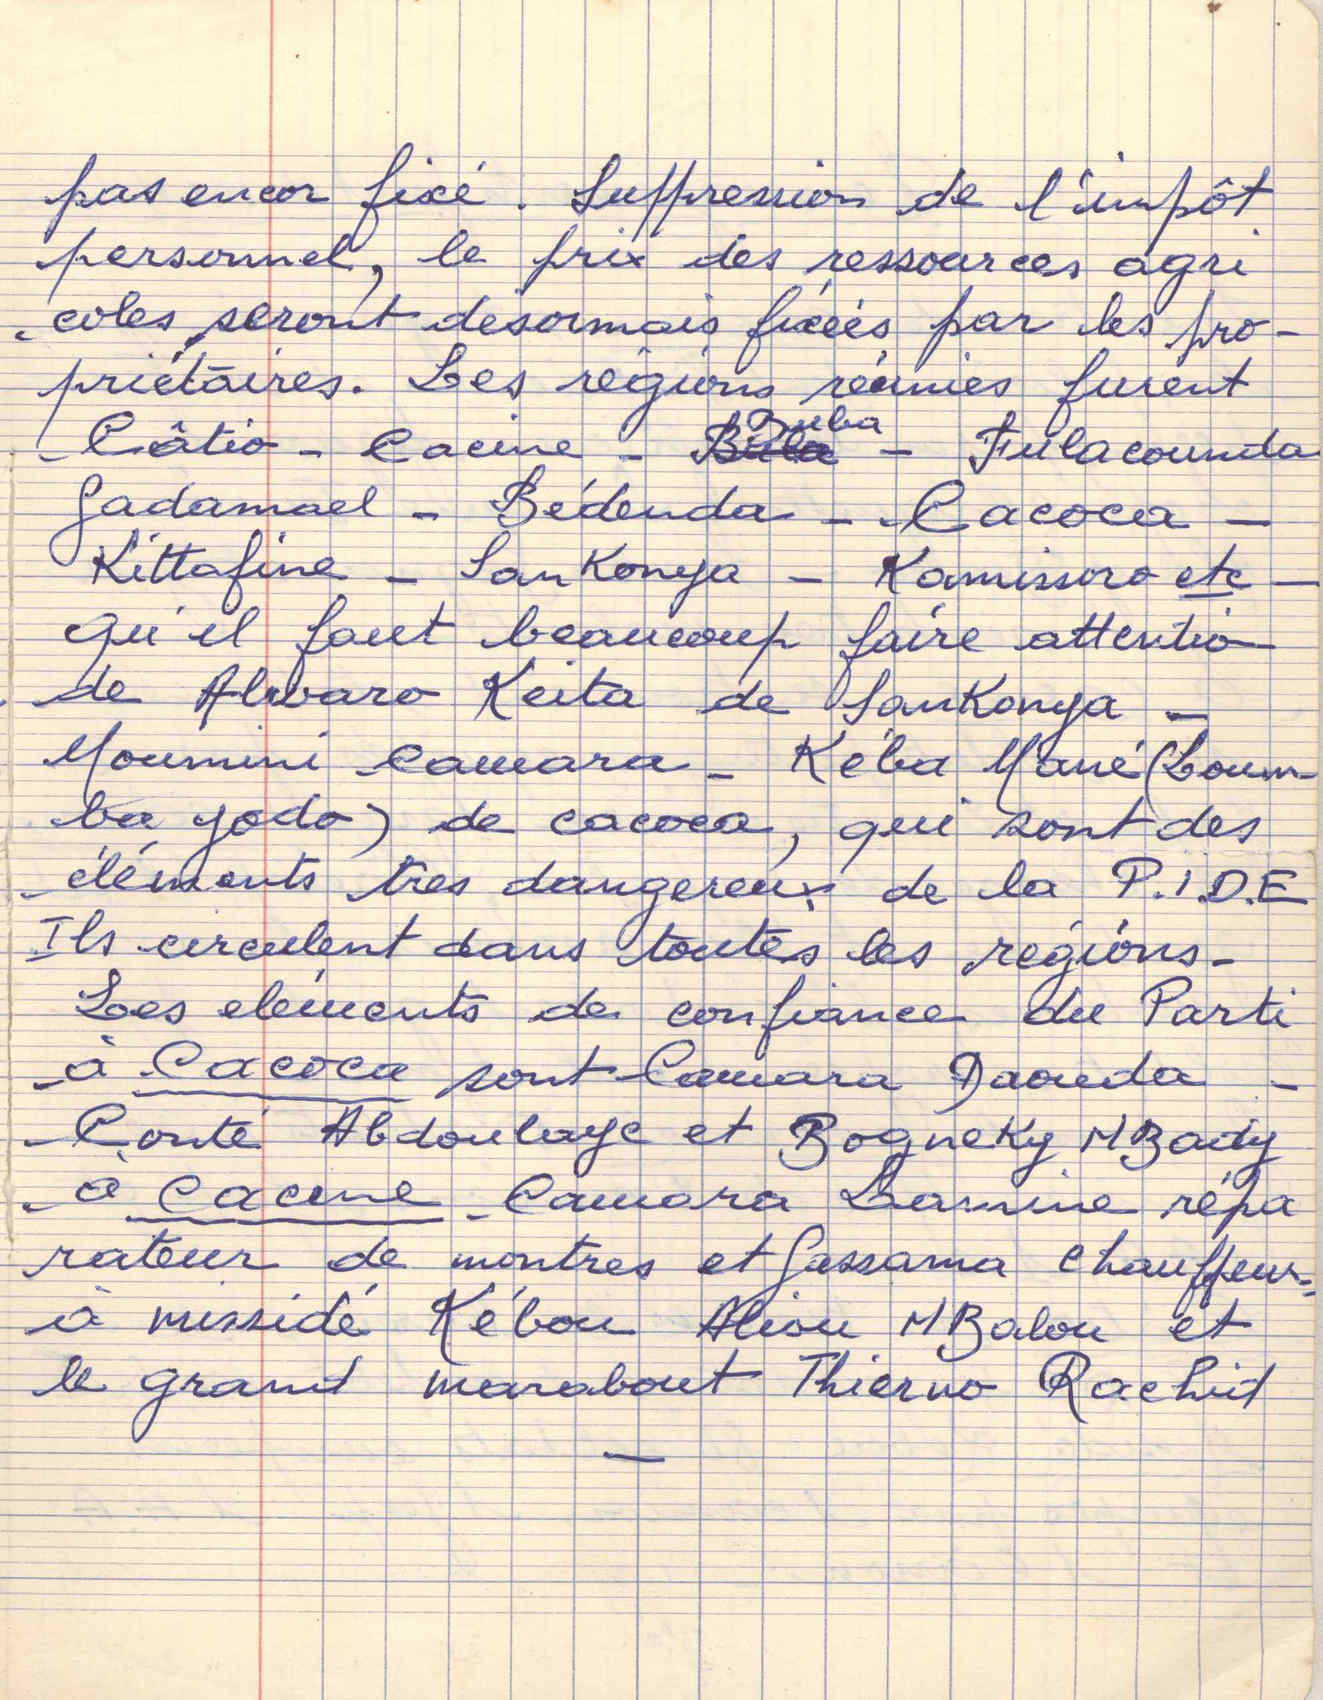 pas encor fixé. Suppression de l'impôt
personnel, le prix des ressources agri
coles seront desormais fixées par les pro-
priétaires. Les régions réunies furent
Câtio - Cacine - Bula Buba - Fulacounda
Gadamael - Bédenda - Cacoca -
Kittafine - Sankonya - Kamissoro etc -
qu'il faut beaucoup faire attentio
de Alwaro Keita de Sankonya -
Moumini Camara - Kéba Mané (Loum-
ba yodo) de cacoca, qui sont des
éléments tres dangereux de la P.I.D.E
Ils circulent dans toutes les régions -
Les eléments de confiance du Parti
à Cacoca sont Camara Daouda -
Conté Abdoulaye et Bogneky MBady
à Cacine - Camara Lamine répa
rateur de montres et Gassama chauffeur -
à missidé Kébou Aliou MBalou et
le grand marabout Thierno Rachid